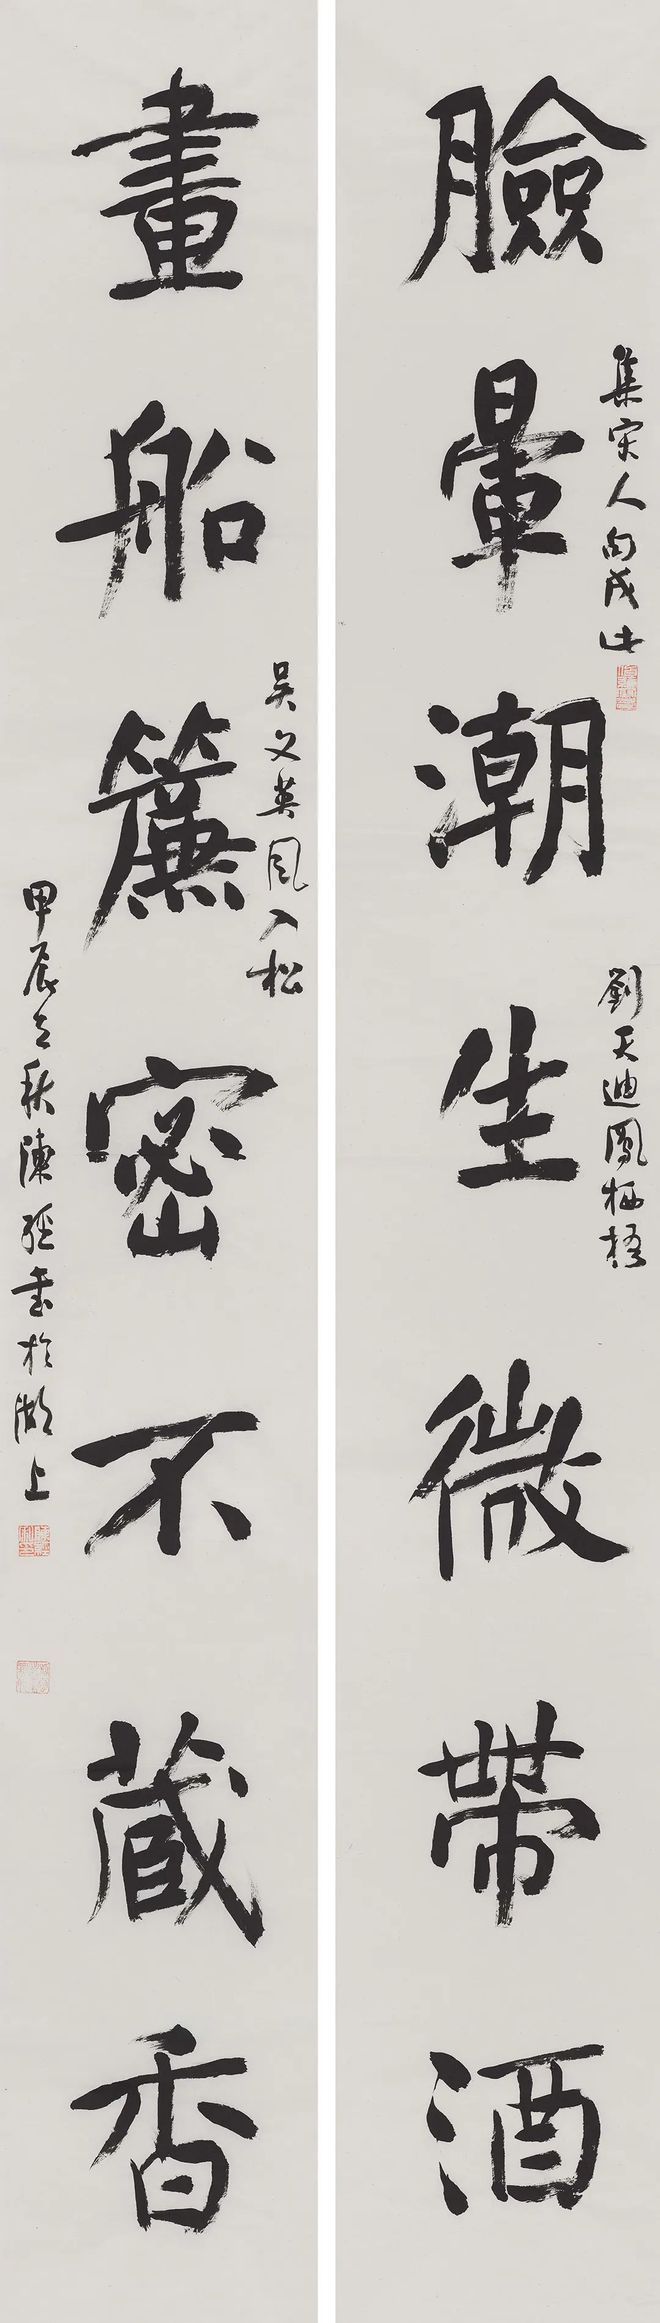 臉暈潮生微帶酒
集宋人句成此
劉天迪鳳栖梧
畫船簾密不藏香
吴文英風入松
甲辰立秋陳經書於湖上